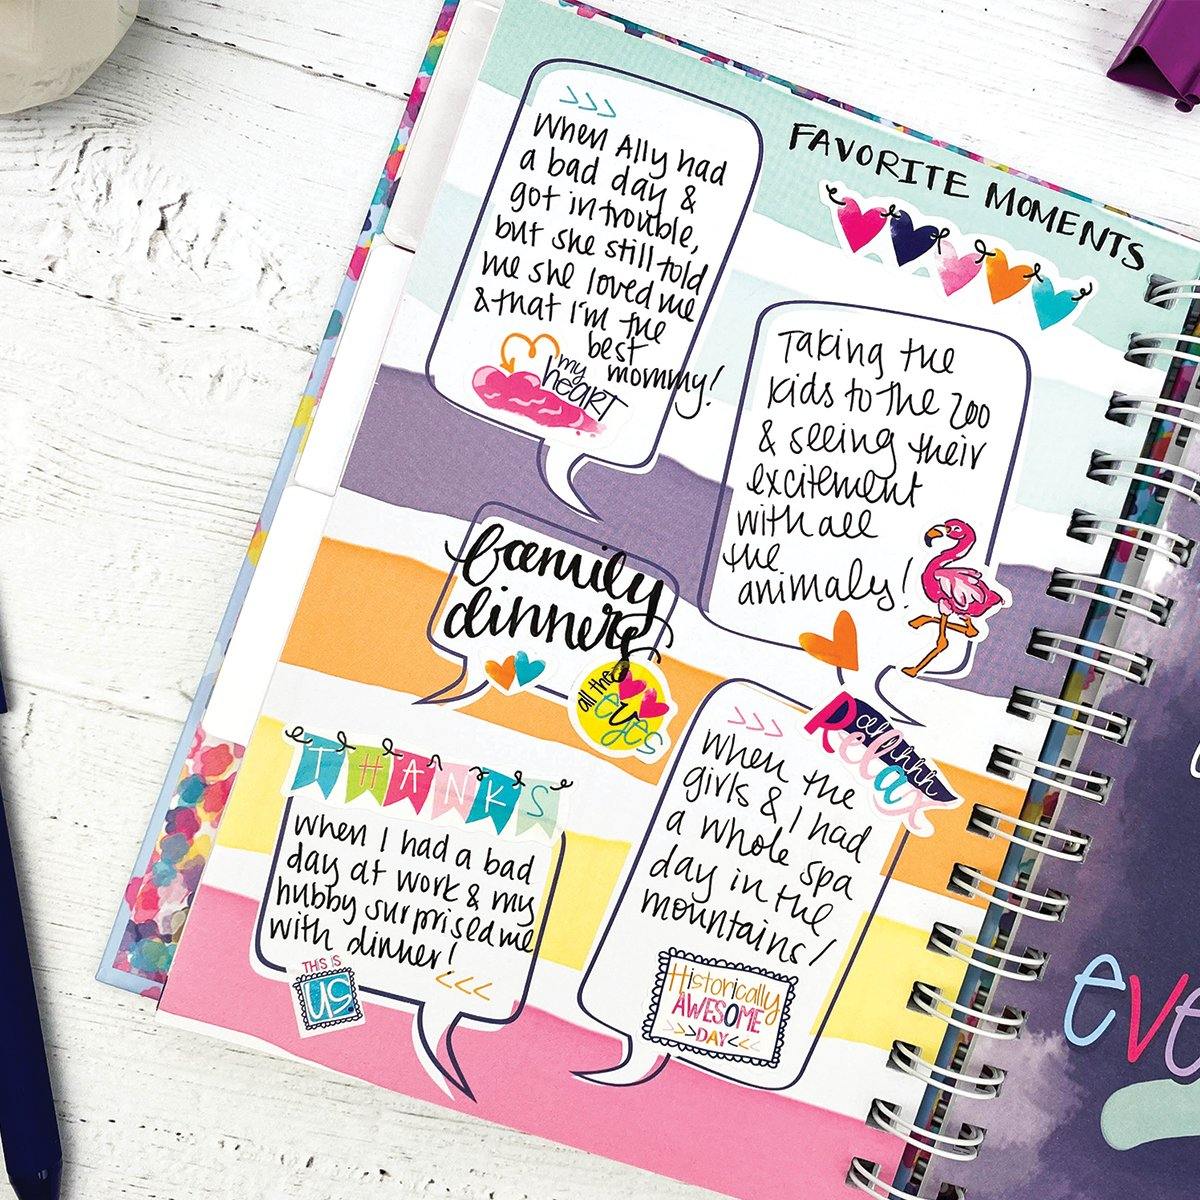 FAVORITE MOMENTS
>>>
When Ally had
a bad day &
got in trouble,
but she still told
me she loved me
& that I'm the
best
mommy!
my
heart
Taking the
kids to the zoo
& seeing their
excitement
with all
the
animals!
family
dinners
all the
eyes
ahhhhh
Relax
THANKS
when I had a bad
day at work & my
hubby surprised me
with dinner!
<<<
THIS IS
US.
>>>
When the
girls & I had
a whole spa
day in the
mountains!
Historically
AWESOME
>>>DAY<<<
eve